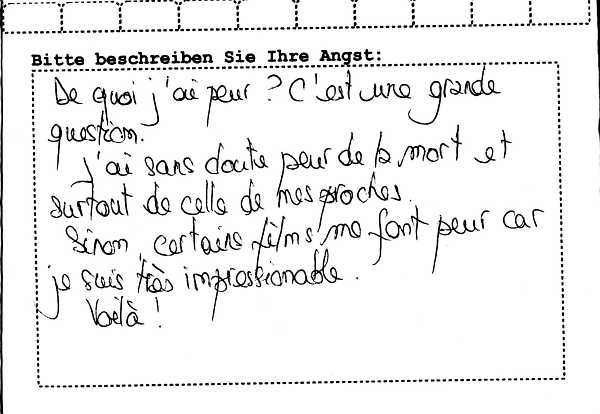 Bitte beschreiben Sie Ihre Angst:
De quoi j'ai peur ? C'est une grande
question.
J'ai sans doute peur de la mort et
surtout de celle de mes proches.
Sinon, certains films me font peur car
je suis très impressionable.
Voilà !